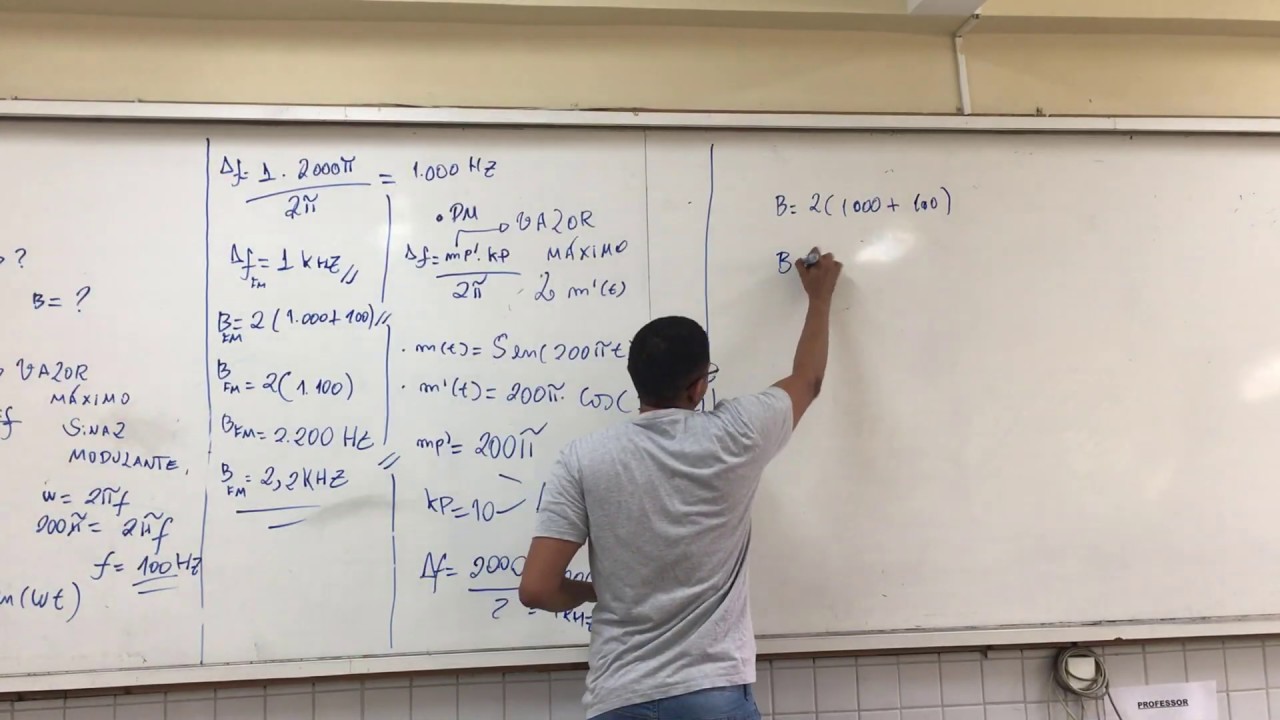 ?
B= ?
VALOR
MÁXIMO
SINAL
MODULANTE,
w= 2πf
200π= 2πf
f= 100Hz
(wt)
Δf= 1. 2000π = 1.000 HZ
2π
Δf= 1KHZ //
FM
B= 2(1.000+100)//
FM
B
FM= 2(1.100)
BFM= 2.200 HZ
B = 2,2KHZ
FM
• PM
VALOR
MÁXIMO
Δf= mp'. kp
2π
m'(t)
. m(t)= Sen(200πt
. m'(t)= 200π. cos(
mp'= 200π
kp=10
Δf= 2000
2
KHZ
B= 2(1000+ 100)
B
PROFESSOR